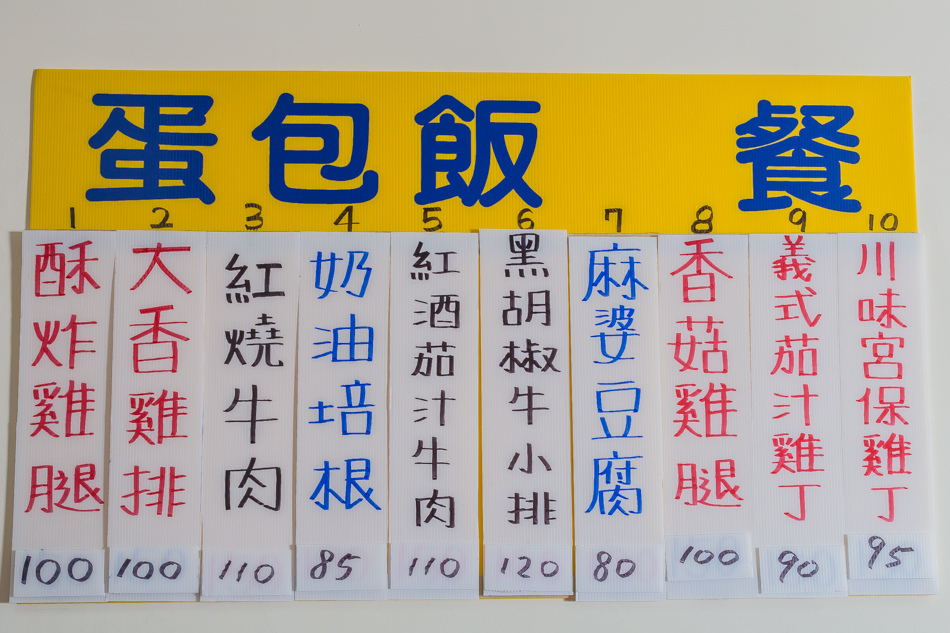 蛋包飯 餐
1 2 3 4 5 6 7 8 9 10
酥炸雞腿
100
大香雞排
100
紅燒牛肉
110
奶油培根
85
紅酒茄汁牛肉
110
黑胡椒牛小排
120
麻婆豆腐
80
香菇雞腿
100
義式茄汁雞丁
90
川味宮保雞丁
95